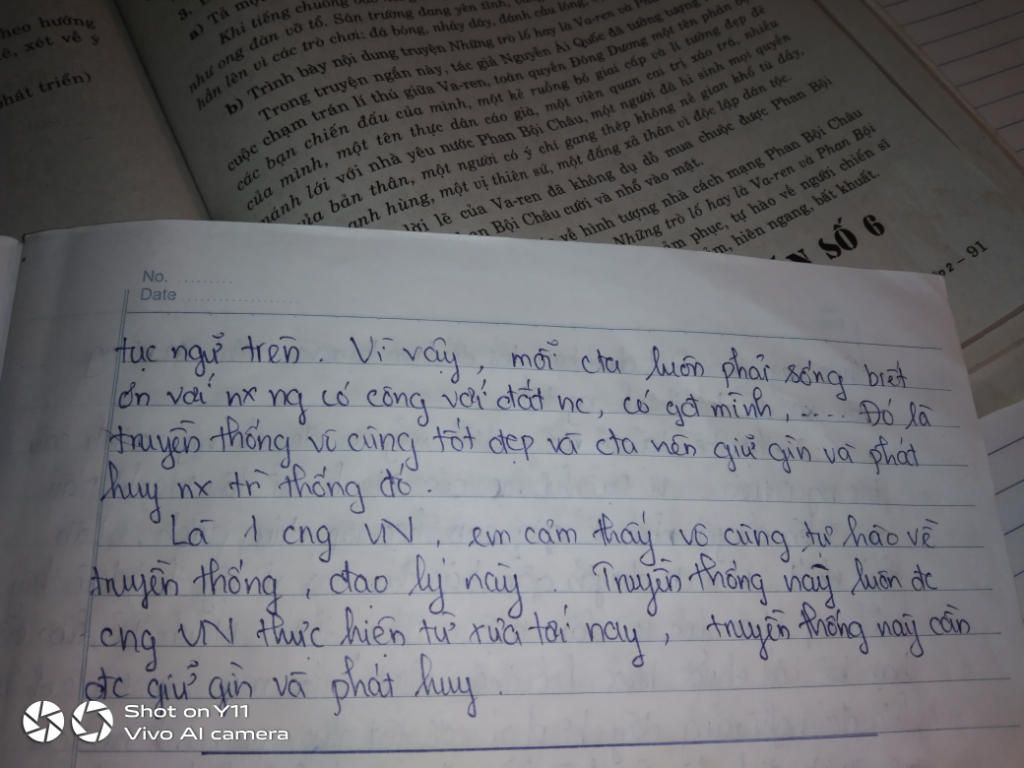 heo hướng
ê, xét về ý
hát triển)
a) Tả
Khi tiếng chuông
như ong đàn vỡ tổ. Sân trường đang yên tĩnh,
hẳn lên vì các trò chơi: đá bóng, nhảy dây, đánh cầu lông,
b) Trình bày nội dung truyện Những trò lố hay là Va-ren và
Trong truyện ngắn này, tác giả Nguyễn Ái Quốc đã tưởng tượng
cuộc chạm trán lí thú giữa Va-ren, toàn quyền Đông Dương một tên phản bội
các bạn chiến đấu của mình, một kẻ ruồng bỏ giai cấp và lí tưởng đẹp đẽ
của mình, một tên thực dân cáo già, một viên quan cai trị xảo trá, nhiều
mánh lới với nhà yêu nước Phan Bội Châu, một người đã hi sinh mọi quyền
của bản thân, một người có ý chí gang thép không nề gian khổ tù đày,
anh hùng, một vị thiên sứ, một đấng xả thân vì độc lập dân tộc.
lời lẽ của Va-ren đã không dụ dỗ mua chuộc được Phan Bội
Phan Bội Châu cười và nhổ vào mặt.
về hình tượng nhà cách mạng Phan Bội Châu
Những trò lố hay là Va-ren và Phan Bội
phục, tự hào về người chiến sĩ
hiên ngang, bất khuất.
SỐ 6
– 91
No.
Date
tục ngữ trên. Vì vậy, mỗi cta luôn phải sống biết
ơn với nx ng có công với đất nc, có gđ mình, .... Đó là
truyền thống vô cùng tốt đẹp và cta nên giữ gìn và phát
huy nx tr thống đó.
Là 1 cng VN, em cảm thấy vô cùng tự hào về
truyền thống, đạo lý này. Truyền thống này luôn đc
cng VN thực hiện từ xưa tới nay, truyền thống này cần
đc giữ gìn và phát huy.
Shot on Y11
Vivo AI camera